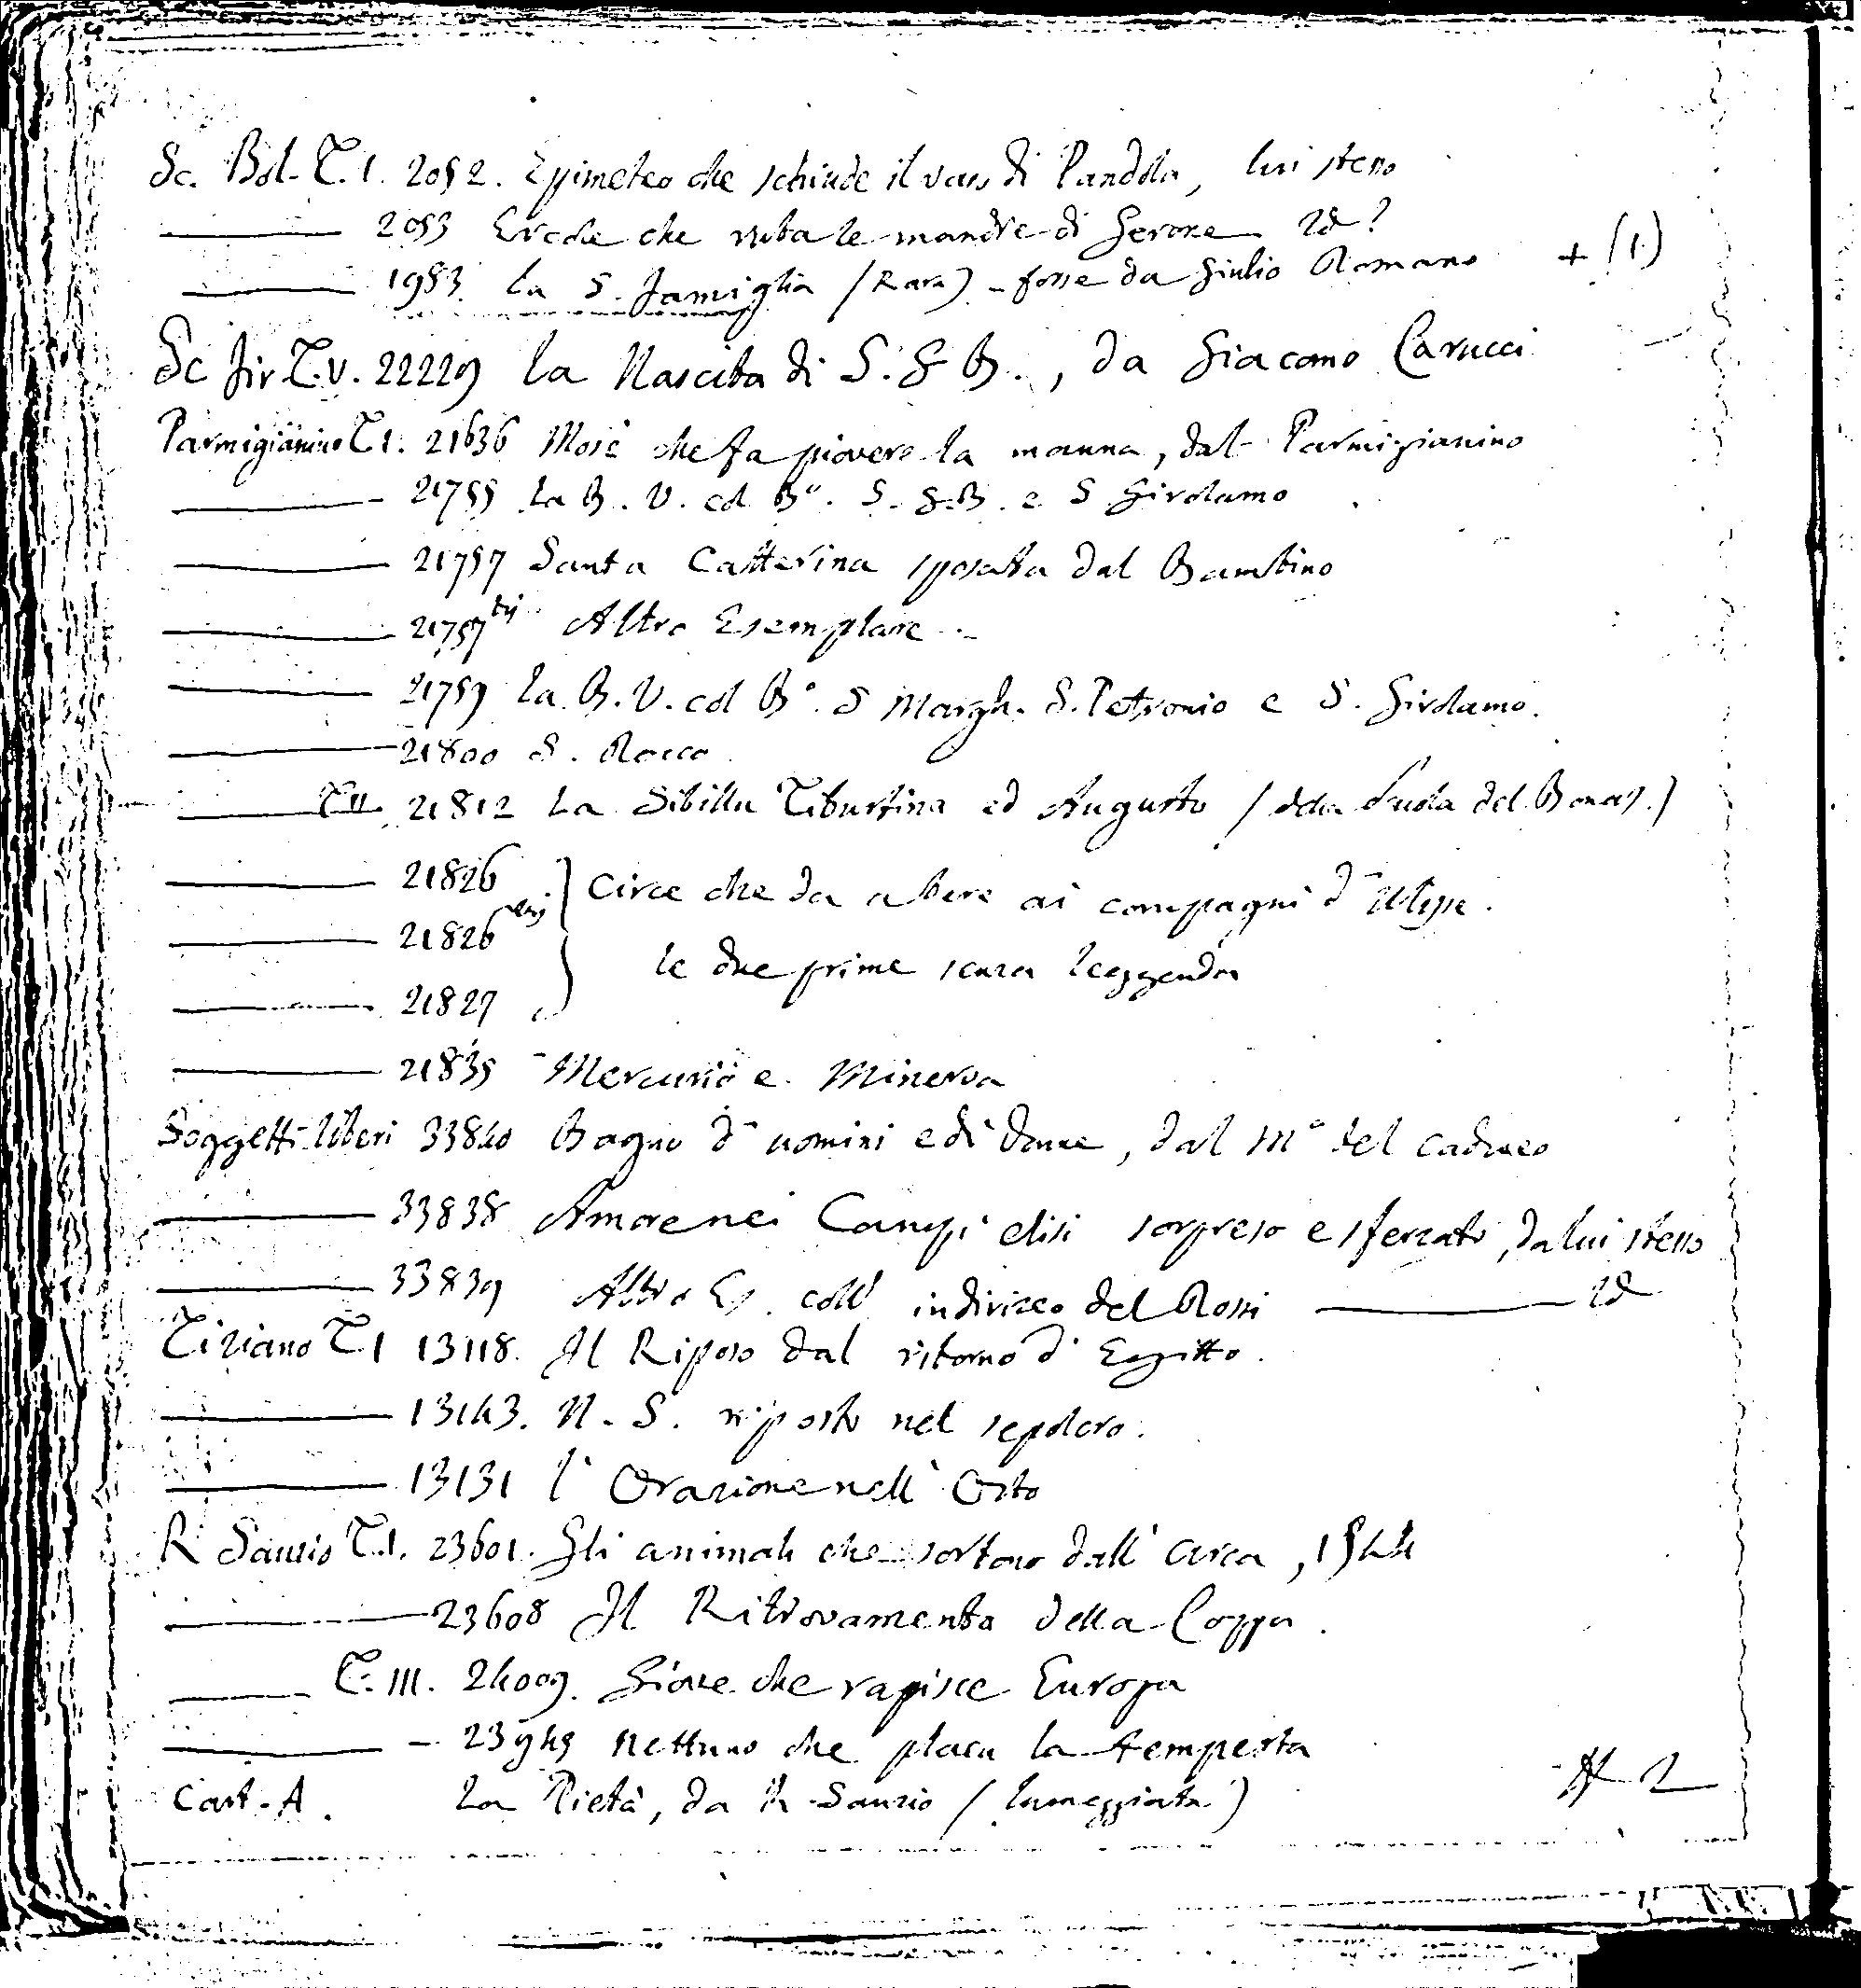 Sc. Bol. T. I. 2052. Epimeteo che schiude il vaso di Pandola, lui stesso
2053 Ercole che ruba le mandre di Gerone Id?
1953 la S. Famiglia (Rara) - forse da Giulio Romano + (1)
Sc Fir. T. V. 22229 la Nascita di S. G B., da Giacomo Carucci
Parmigianino T I. 21636 Mosè che fa piovere la manna, dal Parmigianino
21755 la B. V. col B°. S. G. B. e S Girolamo
21757 Santa Catterina sposata dal Bambino
21757 bis Altro Esemplare
21759 la B. V. col B°. S Margh. S. Petronio e S. Girolamo.
21800 S. Rocco
T II. 21812 La Sibilla Tiburtina ed Augusto (della Scuola del Bonas.)
21826 Circe che da a bere ai compagni d' Ulisse.
21826 bis le due prime senza leggenda
21827
21835 Mercurio e Minerva
Soggetti liberi 33840 Bagno d' uomini e di donne, dal M° del caduceo
33838 Amore nei Campi elisi sorpreso e sferzato, da lui stesso
33839 Altro Es. coll' indirizzo del Rossi Id
Tiziano T I 13118. Il Riposo dal ritorno d' Egitto.
13143. N. S. riposto nel sepolcro.
13131 l' Orazione nell' Orto
R Sanzio T. I. 23601. Gli animali che sortono dall' arca, 1544
23608 Il Ritrovamento della Coppa.
T. III. 24009. Giove che rapisce Europa
23945 Nettuno che placa la tempesta
Cart. A. La Pietà, da R. Sanzio (lumeggiata) 2